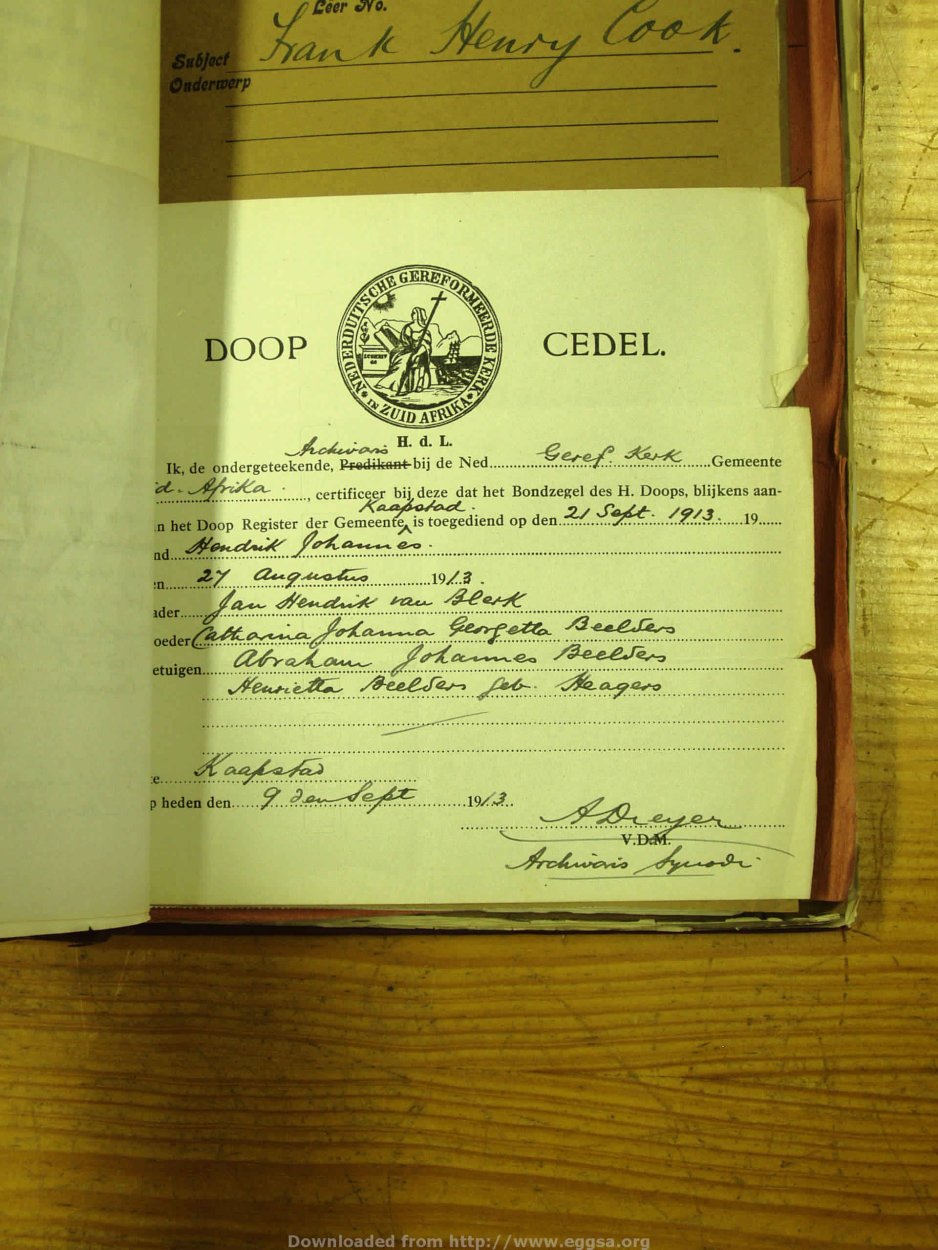 Leer No.
Frank Henry Cook.
Subject
Onderwerp
NEDERDUITSCHE GEREFORMEERDE KERK
IN ZUID AFRIKA
DOOP CEDEL.
H. d. L.
Archivaris
Ik, de ondergeteekende, Predikant bij de Ned. Geref. Kerk Gemeente
d. Afrika, certificeer bij deze dat het Bondzegel des H. Doops, blijkens aan-
Kaapstad.
n het Doop Register der Gemeente ^ is toegediend op den 21 Sept. 1913. 19
nd Hendrik Johannes.
n 27 Augustus 1913.
ader Jan Hendrik van Blerk
oeder Catharina Johanna Georgetta Beelders
etuigen Abraham Johannes Beelders
Henrietta Beelders geb. Heagers
e Kaapstad
p heden den 9 den Sept 1913
A Dreyer
V.D.M.
Archivaris Synodi
Downloaded from http://www.eggsa.org